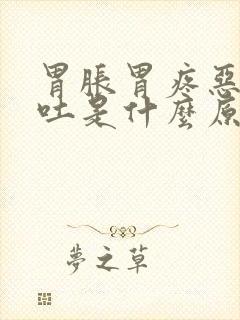 胃脹胃疼惡
吐是什麼原
夢之草